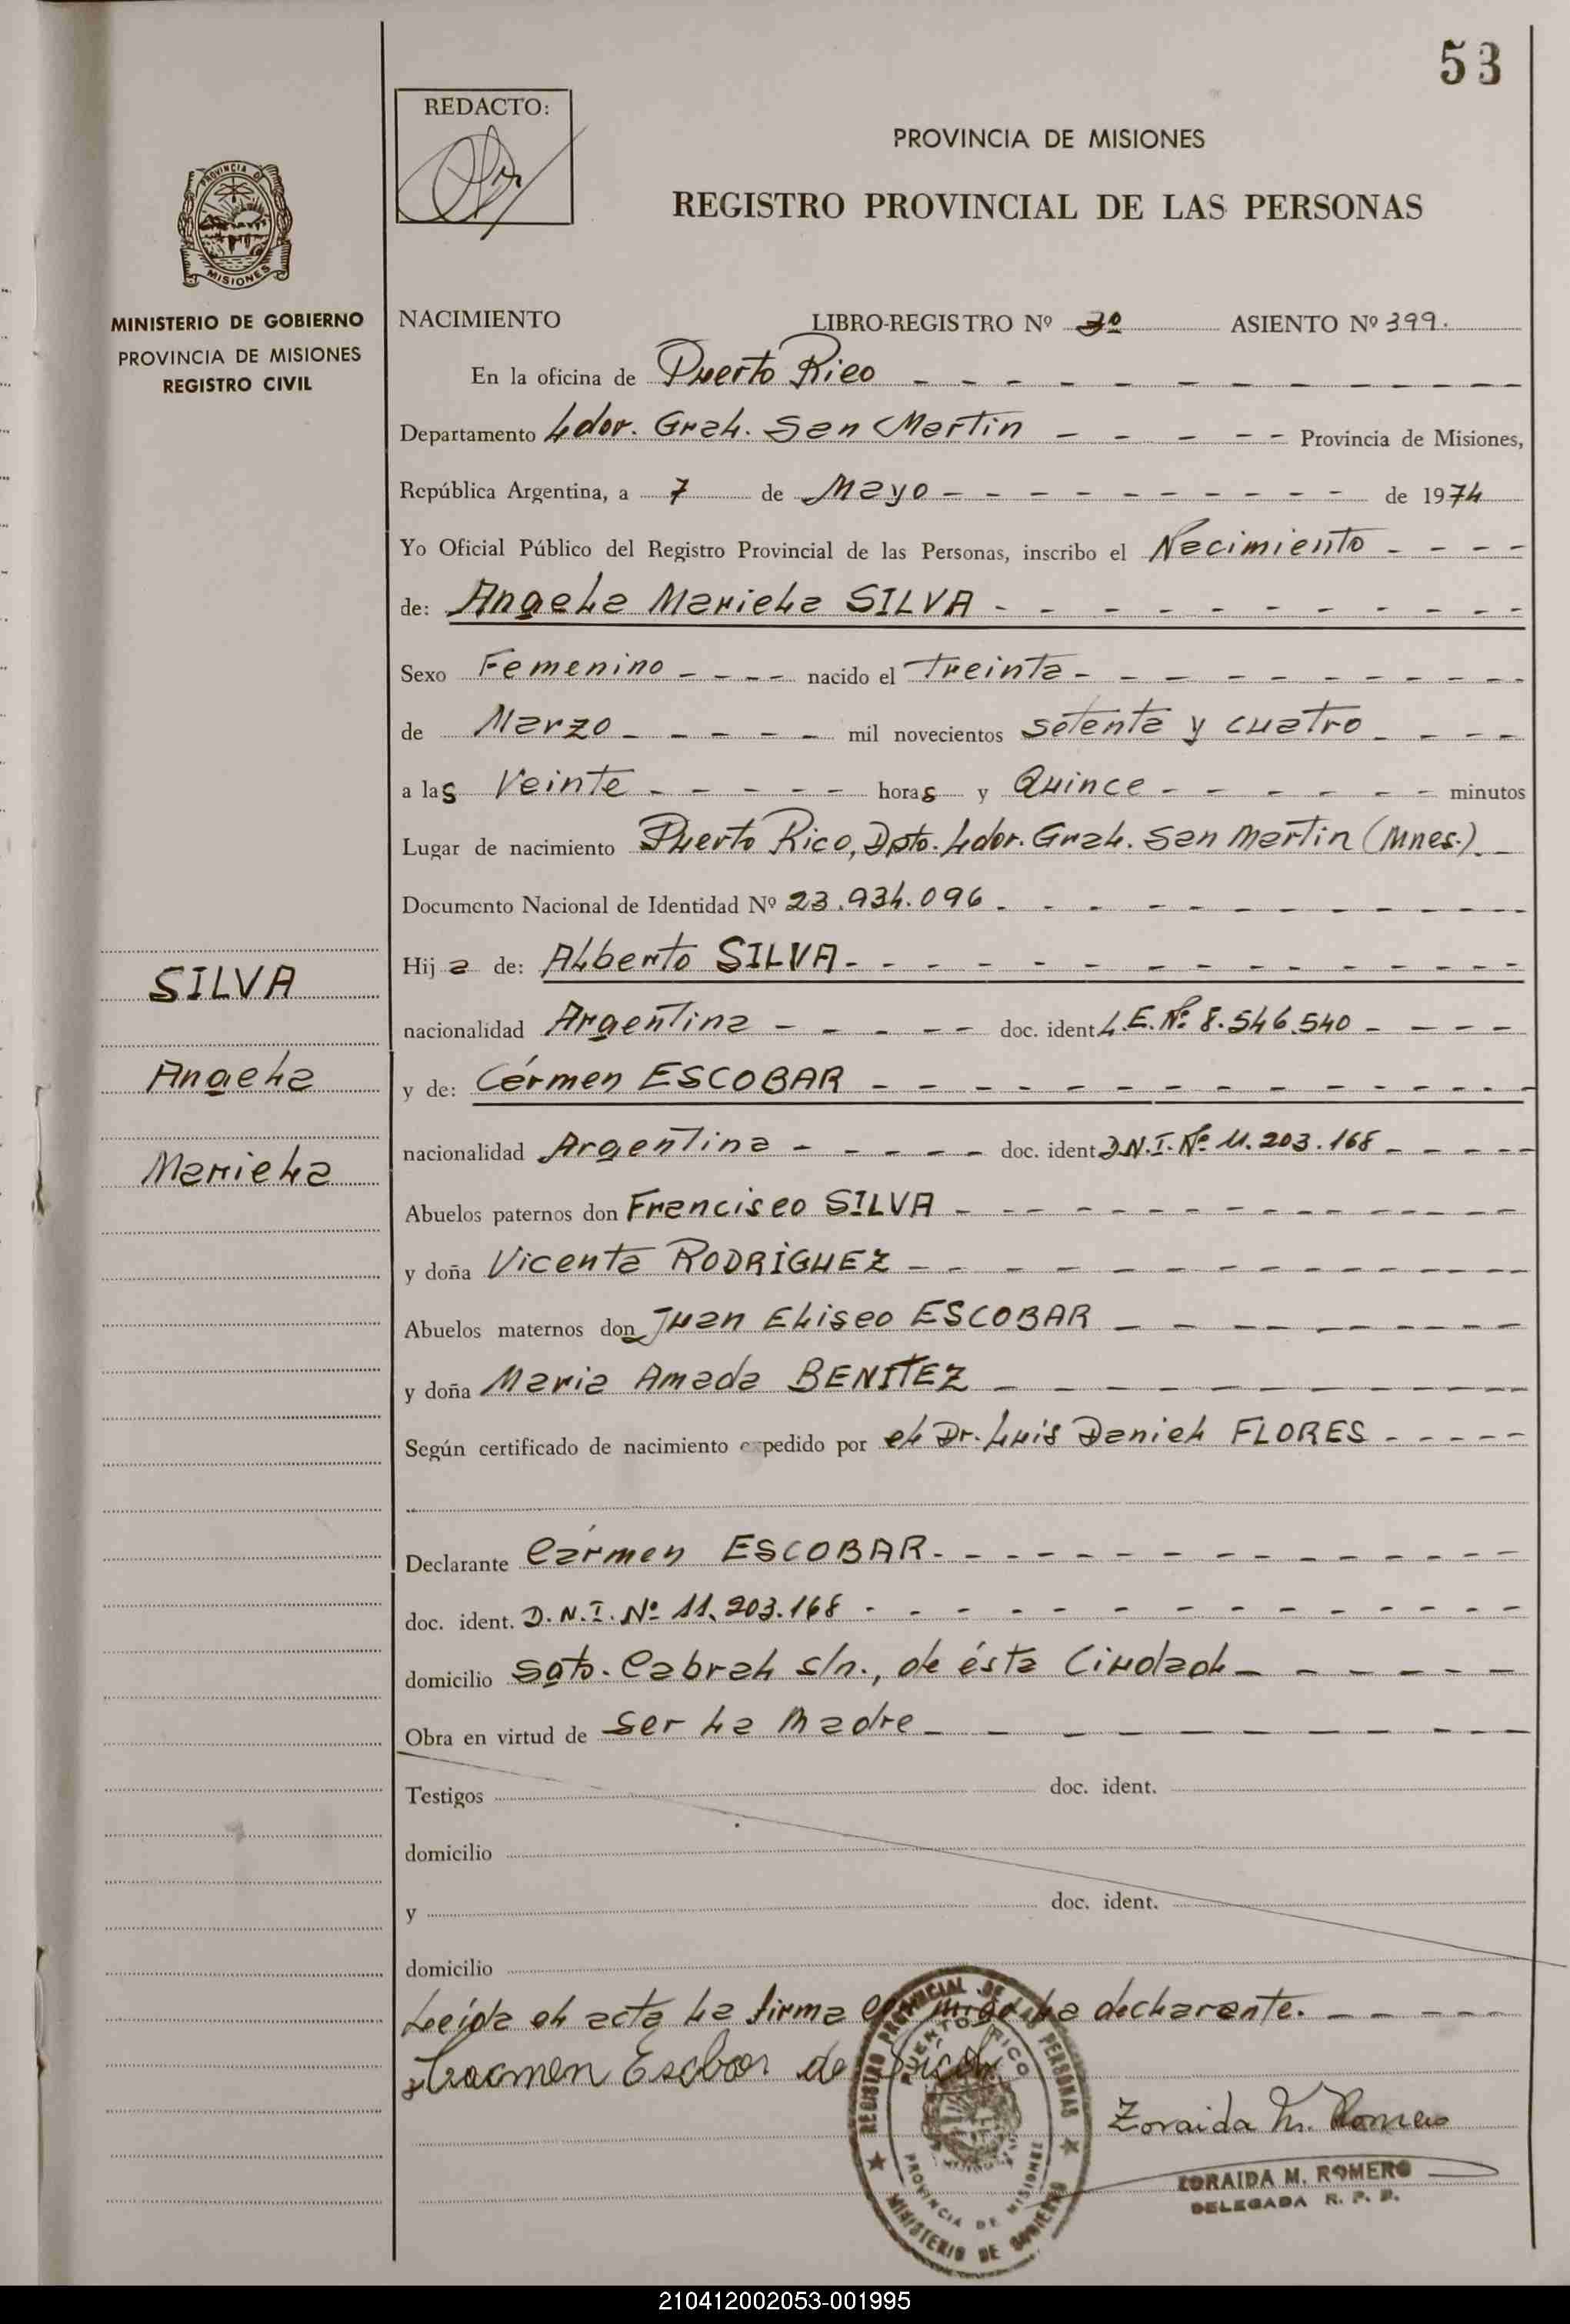 53
REDACTO:
PROVINCIA DE MISIONES
REGISTRO PROVINCIAL DE LAS PERSONAS
PROVINCIA D
MISIONES
MINISTERIO DE GOBIERNO
PROVINCIA DE MISIONES
REGISTRO CIVIL
NACIMIENTO LIBRO-REGISTRO Nº 3º ASIENTO Nº 399.
En la oficina de Puerto Rico
Departamento Ldor. Gral. San Martin - - - - - Provincia de Misiones,
República Argentina, a 7 de Mayo - - - - - - - - - de 1974
Yo Oficial Público del Registro Provincial de las Personas, inscribo el Nacimiento - - - -
de: Angela Mariela SILVA - - - - - - - - - -
Sexo Femenino - - - - nacido el treinta - - - - - - - - -
de Marzo - - - - - mil novecientos setenta y cuatro - - - -
a las Veinte - - - - - horas y Quince - - - - - - minutos
Lugar de nacimiento Puerto Rico, Dpto. Ldor. Gral. San Martin (Mnes.). -
Documento Nacional de Identidad Nº 23.934.096 - - - - - - - - - - -
Hija de: Alberto SILVA - - - - - - - - - - - - -
nacionalidad Argentina - - - - - doc. ident L.E. Nº 8.546.540 - - - -
y de: Cármen ESCOBAR - - - - - - - - - - - - -
nacionalidad Argentina - - - - - doc. ident D.N.I. Nº 11.203.168 - - - - -
Abuelos paternos don Francisco SILVA - - - - - - - - - - - - -
y doña Vicenta RODRIGUEZ - - - - - - - - - - - - -
Abuelos maternos don Juan Eliseo ESCOBAR - - - - - - - - -
y doña Maria Amada BENITEZ - - - - - - - - - -
Según certificado de nacimiento expedido por el Dr. Luis Daniel FLORES - - - - -
Declarante Cármen ESCOBAR - - - - - - - - - - - - -
doc. ident. D.N.I. Nº 11.203.168 - - - - - - - - - - - - -
domicilio Sgto. Cabral s/n., de ésta Ciudad - - - - - -
Obra en virtud de ser la Madre - - - - - - - - - -
Testigos doc. ident.
domicilio
y doc. ident.
domicilio
Leída el acta la firma conmigo la declarante. - - - -
Carmen Escobar de Silva
Zoraida M. Romero
ZORAIDA M. ROMERO
DELEGADA R. P. P.
REGISTRO PROVINCIAL DE LAS PERSONAS
PUERTO RICO
PROVINCIA DE MISIONES
MINISTERIO DE GOBIERNO
SILVA
Angela
Mariela
210412002053-001995